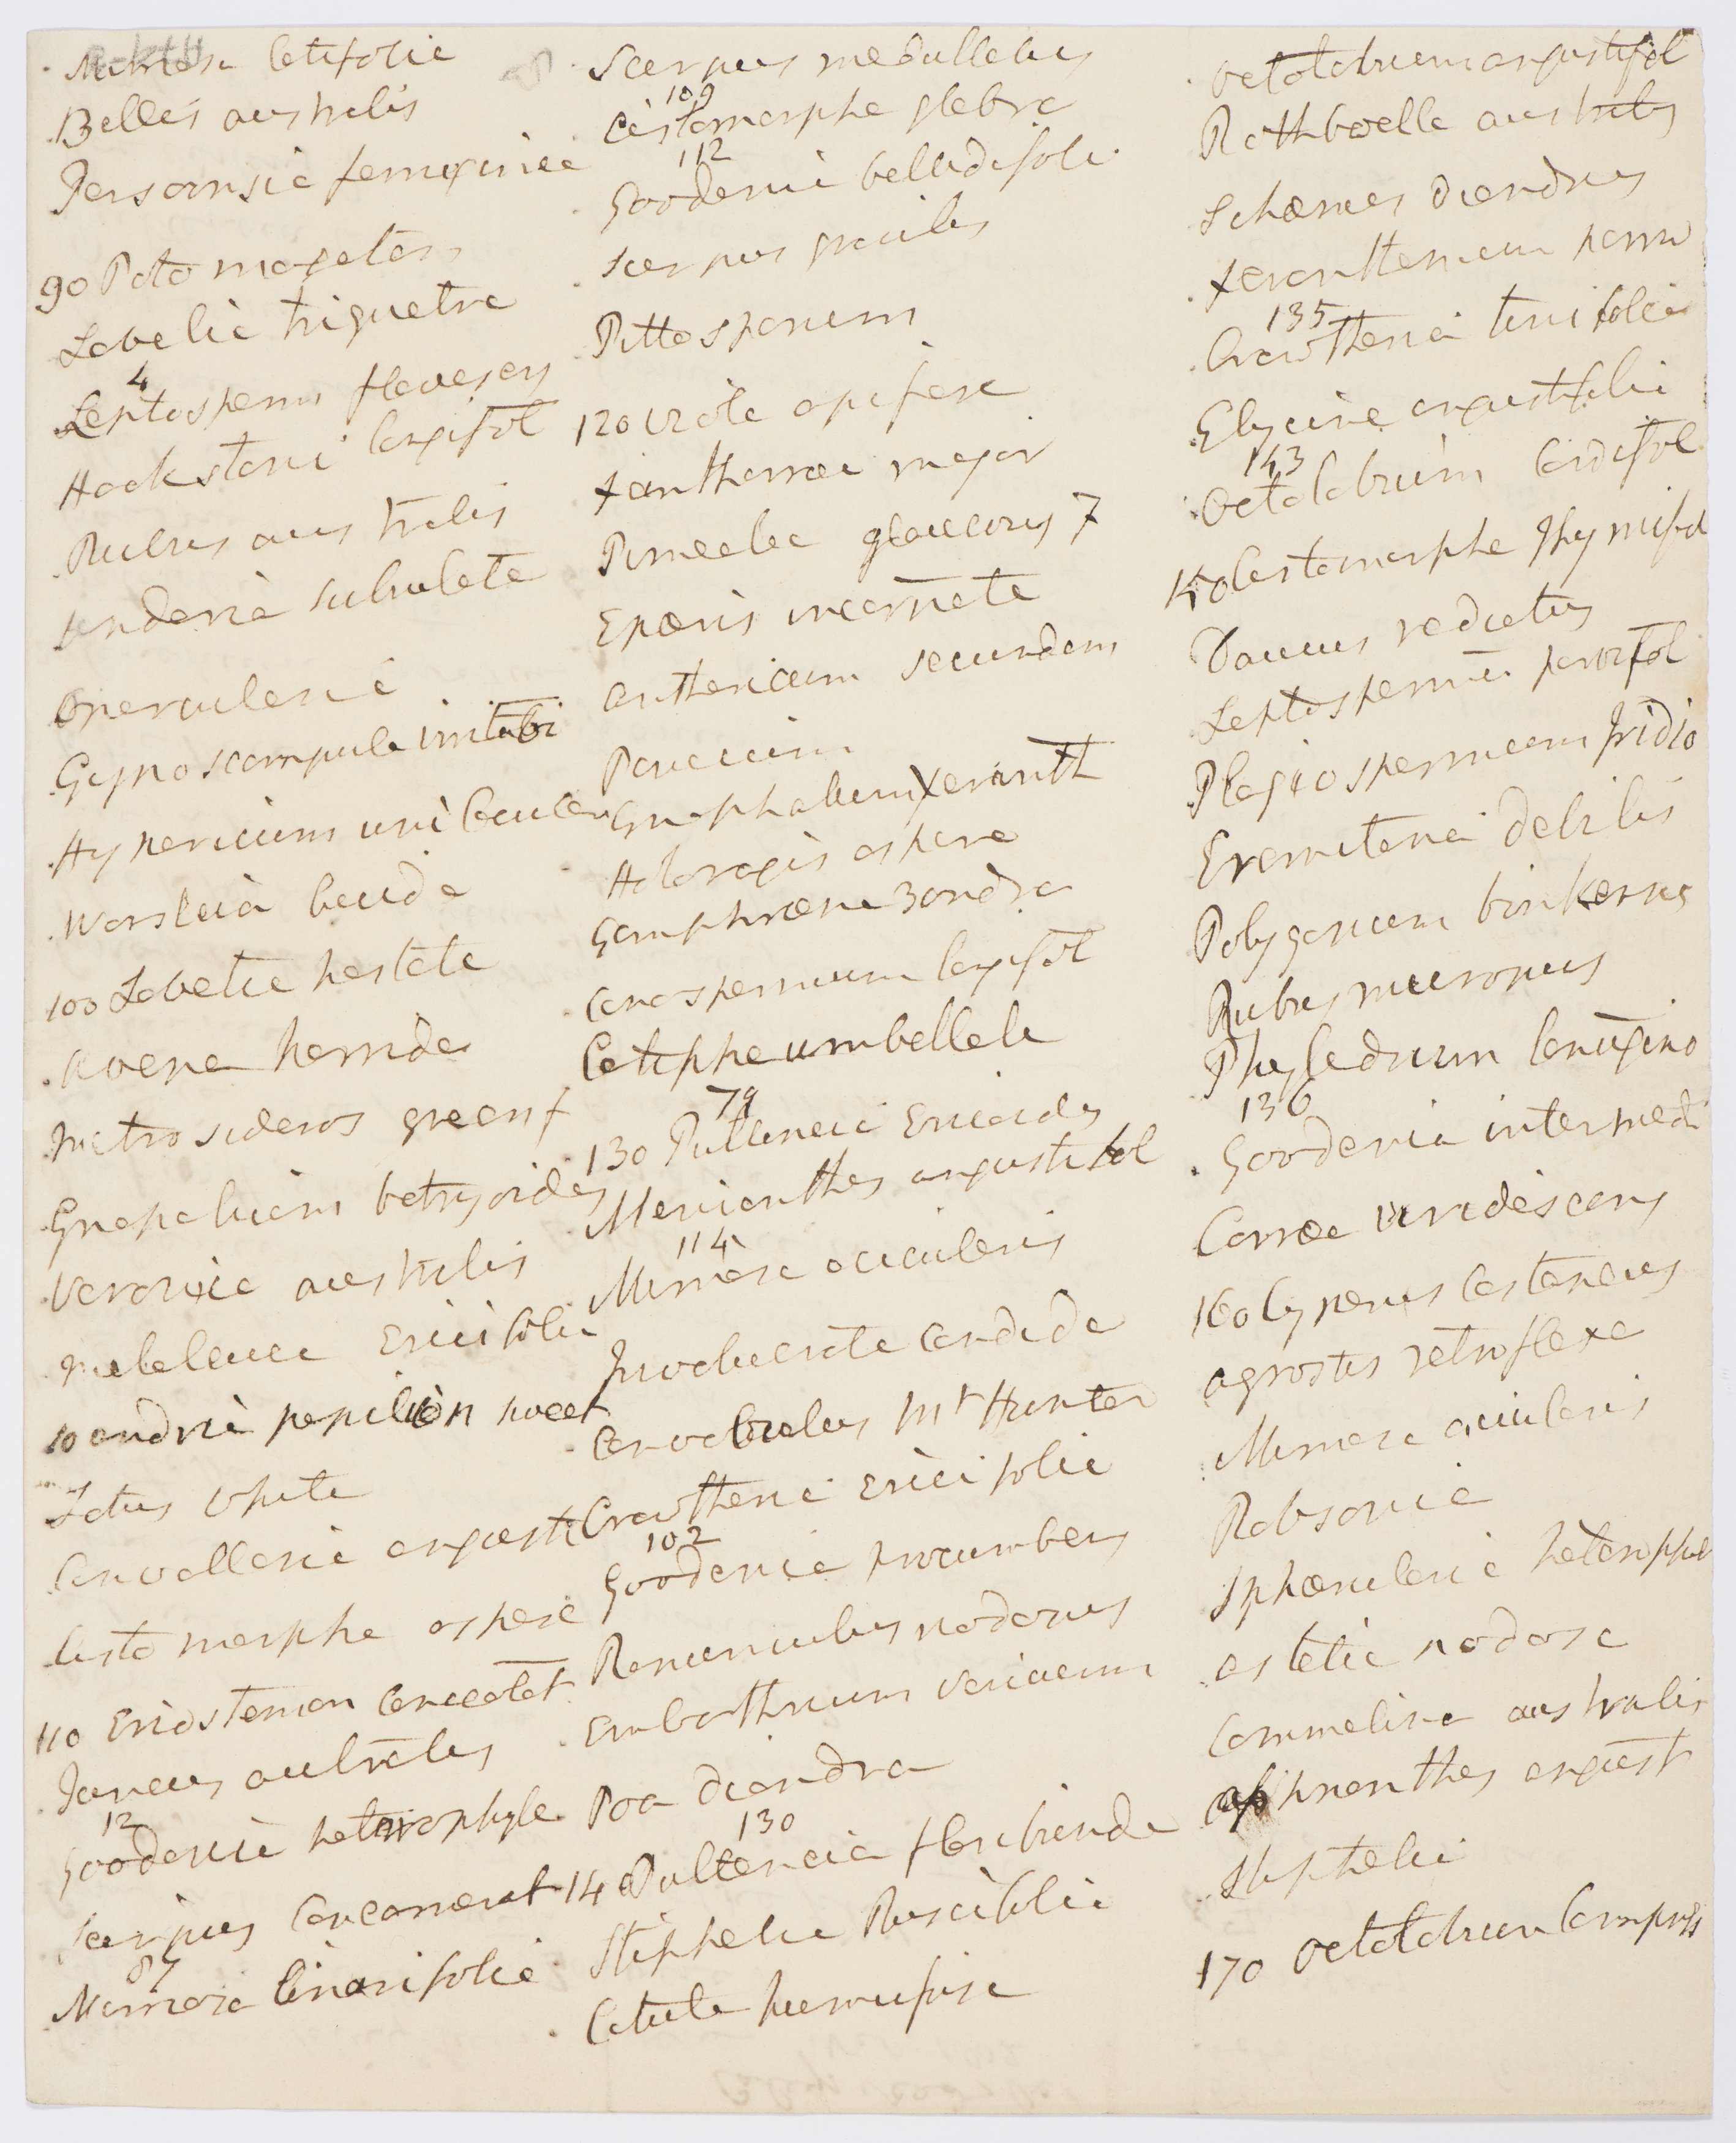 Mimosa latifolia
Bellis australis
Persoonsia feruginea
90 Potomogeton
Lobelia triquetra
4
Leptosperm flavescens
Hackstonia longifol
Rubus australis
subulata
Opercularia
Gynoscampula irritabi
Hypericum
Worsleia
100 Lobelia hastata
Avena horrida
Metrosideros green f
Gnaphalium botrysoides
Veronica australis
Melaleuca Ericifolia
papilion sweet
Lotus white
angusti
Cistomorpha aspera
110 Eriostemon lanceolat
Juncus aulralis
12
Goodenia heterophyle
Scirpus
87
Mimosa linarifolia
Scirpus medullaris
109
Cistomorpha glabra
112
Goodenia bellidifolia
Scirpus gracilis
Pittosporum
120 Viola
Xanthorroea major
Pimealea glaucous 7
Epacris incarnata
Anthericum secundum
Panicum
Gnaphalium Xeranth
Haloragis aspera
Gomphraena 3andra
Conospermum longifol
umbellata
79
130 Pulteneia Ericoides
Menianthes angustifol
114
Mimosa acicularis
Involucrata candida
Convolvulus Mr Hunter
Crowthenia Ericifolia
102
Goodenia procumbens
Ranunculus nodosus
Embothrium variaeum
Poa diandra
130
140 Pulteneia floribunda
Stiphelia Ruscifolia
Cotula
Octotobrium angustifol
Rothboella australis
Schoenus diandrus
Xeranthemum
135
Crowthenia tenifolia
Glycine angustifolia
143
Octolobrium Cordifol
150 Cistomorpha thymifol
Daucus radiatus
Leptospermum parvifol
Plagiospermum Iridio
Eremitenia debilis
Polygonum
Rubus
Phyladrum lanugino
136
Goodenia intermedi
Corroea viridescens
160 Cyperus castaneus
Agrostis retroflexa
Mimosa acicularis
Robsonia
Sphoerularia heterophyl
nodosa
Commelina australis
angust
Stiphelia
170 Octotobrium Compress